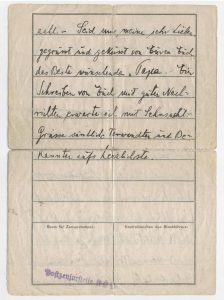 esst. – Seid mir meine sehr Lieben
gegrüsst und geküsst von Euren Euch
das Beste wünschende "Papa. Ein
Schreiben von Euch mit guten Nach-
richten erwarte ich mit Sehnsucht
Grüsse sämtliche Verwandten und Be-
kannten aufs herzlichste.
Raum für Zensurstempel:
Kontrollzeichen des Blockführers:
Postzensurstelle